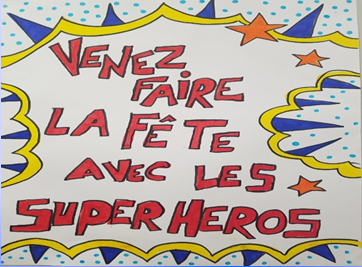 VENEZ
FAIRE
LA FÊTE
AVEC LES
SUPER HEROS